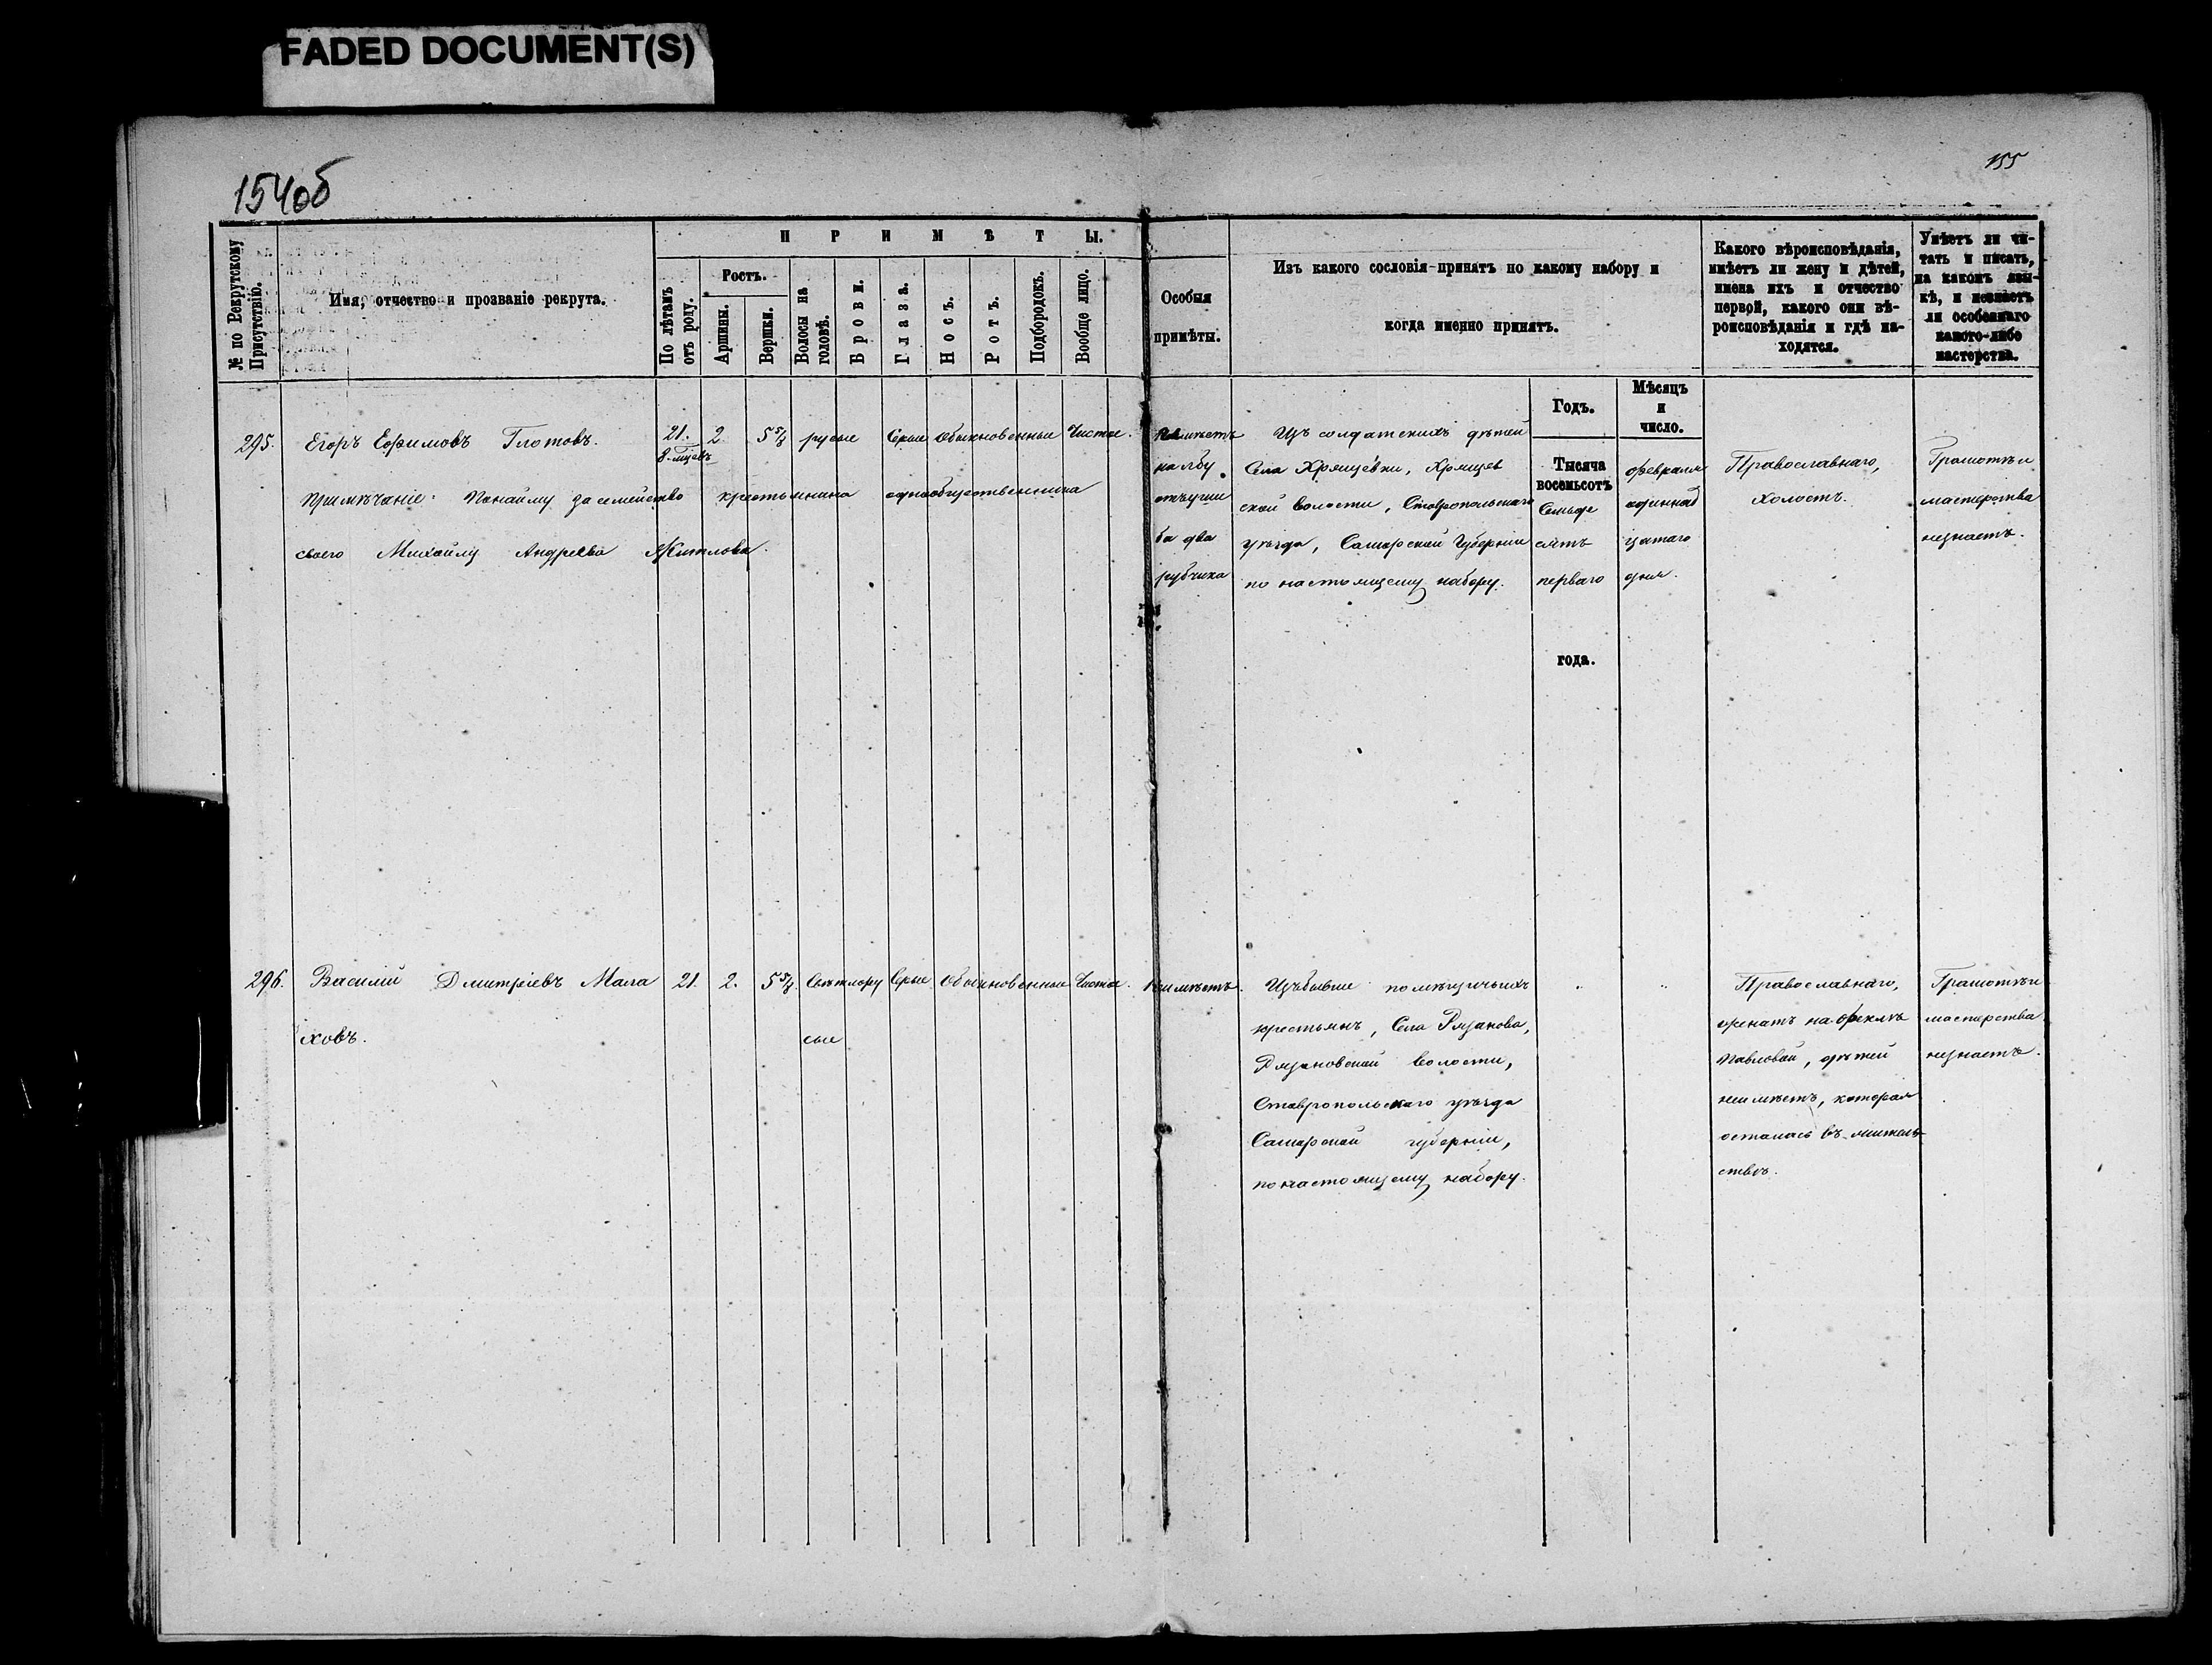 FADED DOCUMENT(S)
154об
155
№ по Рекрутскому Присутствію.
Имя, отчество и прозваніе рекрута.
ПРИМѢТЫ.
По лѣтамъ отъ роду.
Ростъ.
Аршины.
Вершки.
Волосы на головѣ.
Брови.
Глаза.
Носъ.
Ротъ.
Подбородокъ.
Вообще лицо.
Особыя
примѣты.
Изъ какого сословія принятъ по какому набору и
когда именно принятъ.
Какого вѣроисповѣданія,
имѣетъ ли жену и дѣтей,
имена ихъ и отчество
первой, какого они вѣ-
роисповѣданія и гдѣ на-
ходятся.
Умѣетъ ли чи-
тать и писать,
на какомъ язы-
кѣ, и незнаетъ
ли особеннаго
какого-либо
мастерства.
Годъ.
Мѣсяцъ
и
число.
295.
Егоръ Ефимовъ Глотовъ.
Примѣчаніе: Понайму за семейство крестьянина однообщественника
своего Михайлу Андреева
21.
8 мцевъ
2
5 5/8
русые
Серые
обыкновенные
Чистое.
на лбу
два
рубчика
Изъ солдатскихъ дѣтей
Села Хрящевки, Хрящев
ской волости, Ставропольскаго
уѣзда, Самарской Губерніи
по настоящему набору.
Тысяча
восемьсотъ
Семьде
сятъ
перваго
года.
февраля
одиннад
цатаго
дня.
Православнаго,
холостъ.
Грамотѣ и
мастерства
незнаетъ.
296.
Василій Дмитріевъ Мала
ховъ.
21.
2.
5 5/8
Свѣтлору
сые
Серые
Обыкновенные
Чистое.
Неимѣетъ.
Изъ бывше помѣщичьихъ
крестьянъ, Села Рязанова,
Рязановской волости,
Ставропольскаго уѣзда
Самарской губерніи,
по настоящему набору.
"
"
Православнаго,
женатъ на Феклѣ
Павловой, дѣтей
неимѣетъ, которая
осталась въ житель
ствѣ.
Грамотѣ и
мастерства
незнаетъ.